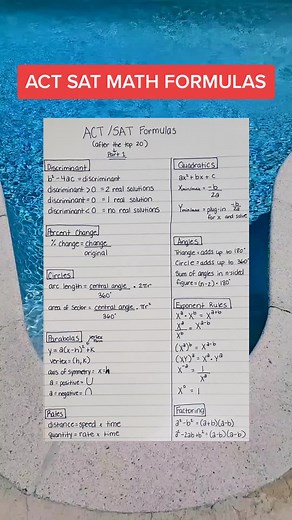 ACT SAT MATH FORMULAS
ACT/SAT Formulas
(after the top 20)
Part 1
Discriminant
b² - 4ac = discriminant
discriminant > 0 = 2 real solutions
discriminant = 0 = 1 real solution
discriminant < 0 = no real solutions
Percent Change
% change = change
original
Circles
arc length = central angle · 2πr
360°
area of sector = central angle · πr²
360°
Parabolas
vertex
y = a(x-h)² + k
vertex = (h, k)
axis of symmetry = x = h
a = positive = ∪
a = negative = ∩
Rates
distance = speed x time
quantity = rate x time
Quadratics
ax² + bx + c
Xmin/max = -b
2a
Ymin/max = plug in -b/2a
for x and solve
Angles
Triangle = adds up to 180°
Circle = adds up to 360°
Sum of angles in n-sided
figure = (n-2) · 180°
Exponent Rules
Xᵃ · Xᵇ = Xᵃ⁺ᵇ
Xᵃ = Xᵃ⁻ᵇ
Xᵇ
(Xᵃ)ᵇ = Xᵃ·ᵇ
(XY)ᵃ = Xᵃ · Yᵃ
X⁻ᵃ = 1
Xᵃ
X⁰ = 1
Factoring
a² - b² = (a+b)(a-b)
a² - 2ab + b² = (a-b)(a-b)